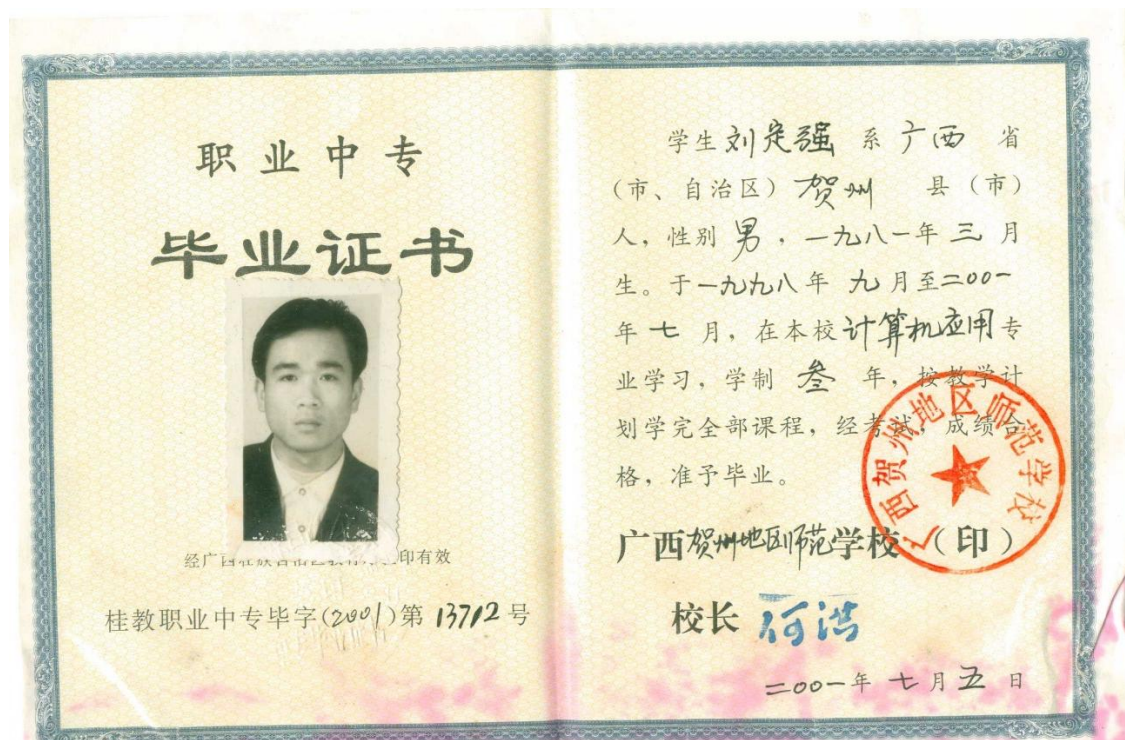 职业中专
毕业证书
经广西壮族自治区教育 印有效
桂教职业中专毕字(2001)第 13712 号
学生刘定强 系 广西 省
(市、自治区) 贺州 县(市)
人，性别 男，一九八一年 三 月
生。于一九九八年 九 月至二00一
年 七 月，在本校计算机应用专
业学习，学制 叁 年，按教学计
划学完全部课程，经考试，成绩合
格，准予毕业。
广西贺州地区师范学校 (印)
广西贺州地区师范学校
校长 何浩
二00一年 七 月 五 日